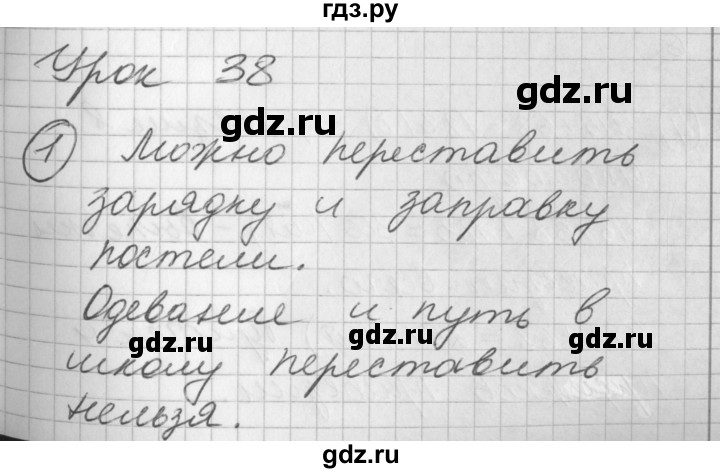 гдз.ру
Урок 38
gdz.ru
gdz.ru
1 Можно переставить
зарядку и заправку
gdz.ru
gdz.ru
постели.
Одевание и путь в
gdz.ru
gdz.ru
gdz.ru
школу переставить
нельзя.
gdz.ru